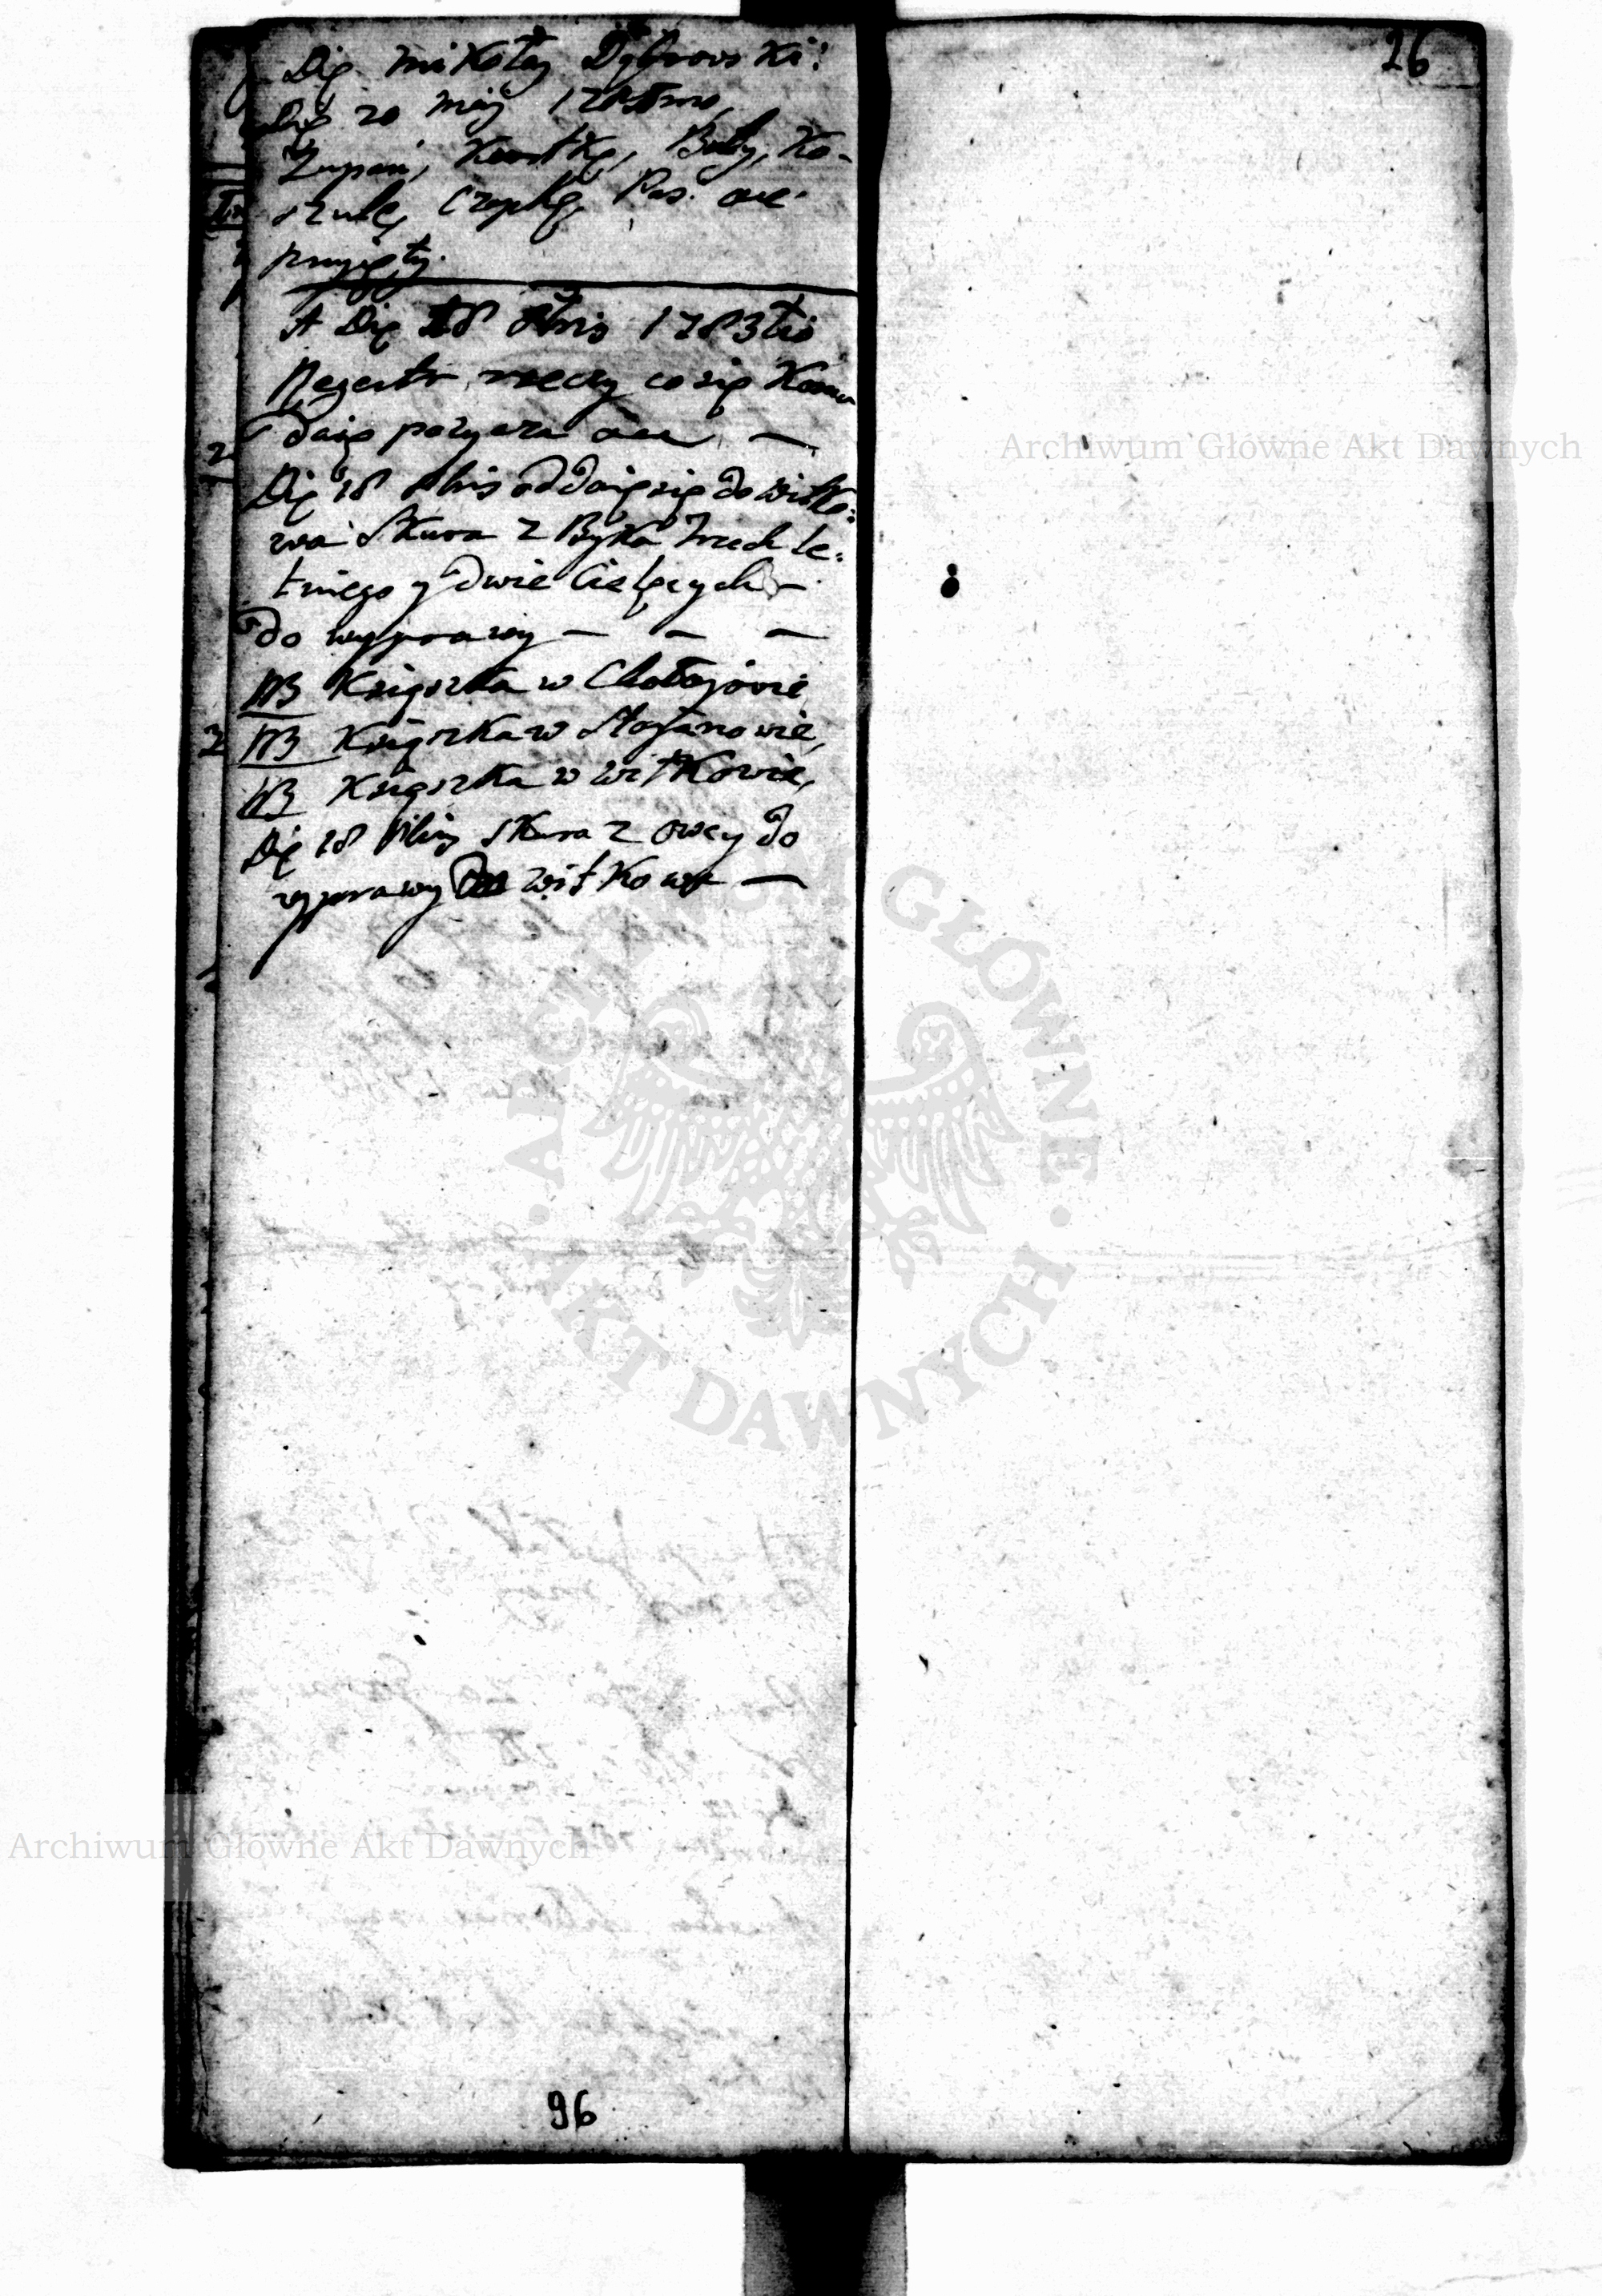 Dię Mikołay Dąbrowski:
20 Maij
Żupan, Kurtkę, Boty, Ko-
szulę, Czapkę, Pas. etc.
przyięty.
A Dię 18 1783tio
Regestr rzeczy co się Komu
daię pozycza etc —
Dię 18 oddaię się do Witko:
wa Skura z Byka Trzech le:
tniego y dwie Cielęcych —
do wyprawy — — —
NB Ksiąszka w Chołojowie
NB Ksiąszka w Stojanowie,
NB Ksiąszka w Witkowie,
Dię 18 Skura z owcy do
wyprawy Do Witkowa —
96
26
Archiwum Główne Akt Dawnych
ARCHIWUM GŁÓWNE
AKT DAWNYCH
Archiwum Główne Akt Dawnych